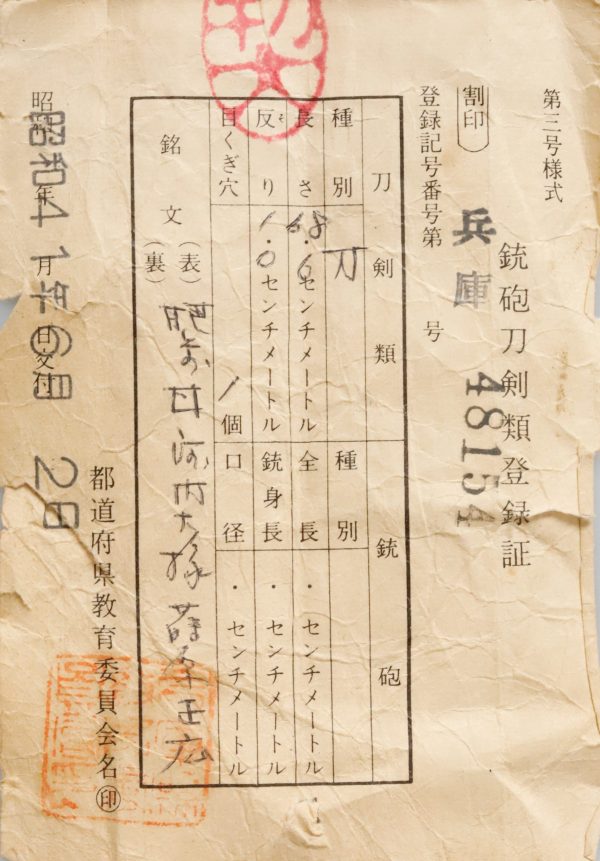 第三号様式
銃砲刀剣類登録証
割印
登録記号番号第 兵庫 48154 号
刀剣類
種別 刀
長さ 68.6センチメートル
反り 1.0センチメートル
そ
目くぎ穴 1個
銃砲
種別
全長 ・センチメートル
銃身長 ・センチメートル
口径 ・センチメートル
銘文 (表) 肥前国河内大掾藤原正広
(裏)
昭和 年 月 日交付
昭和41年6月2日
都道府県教育委員会名 印